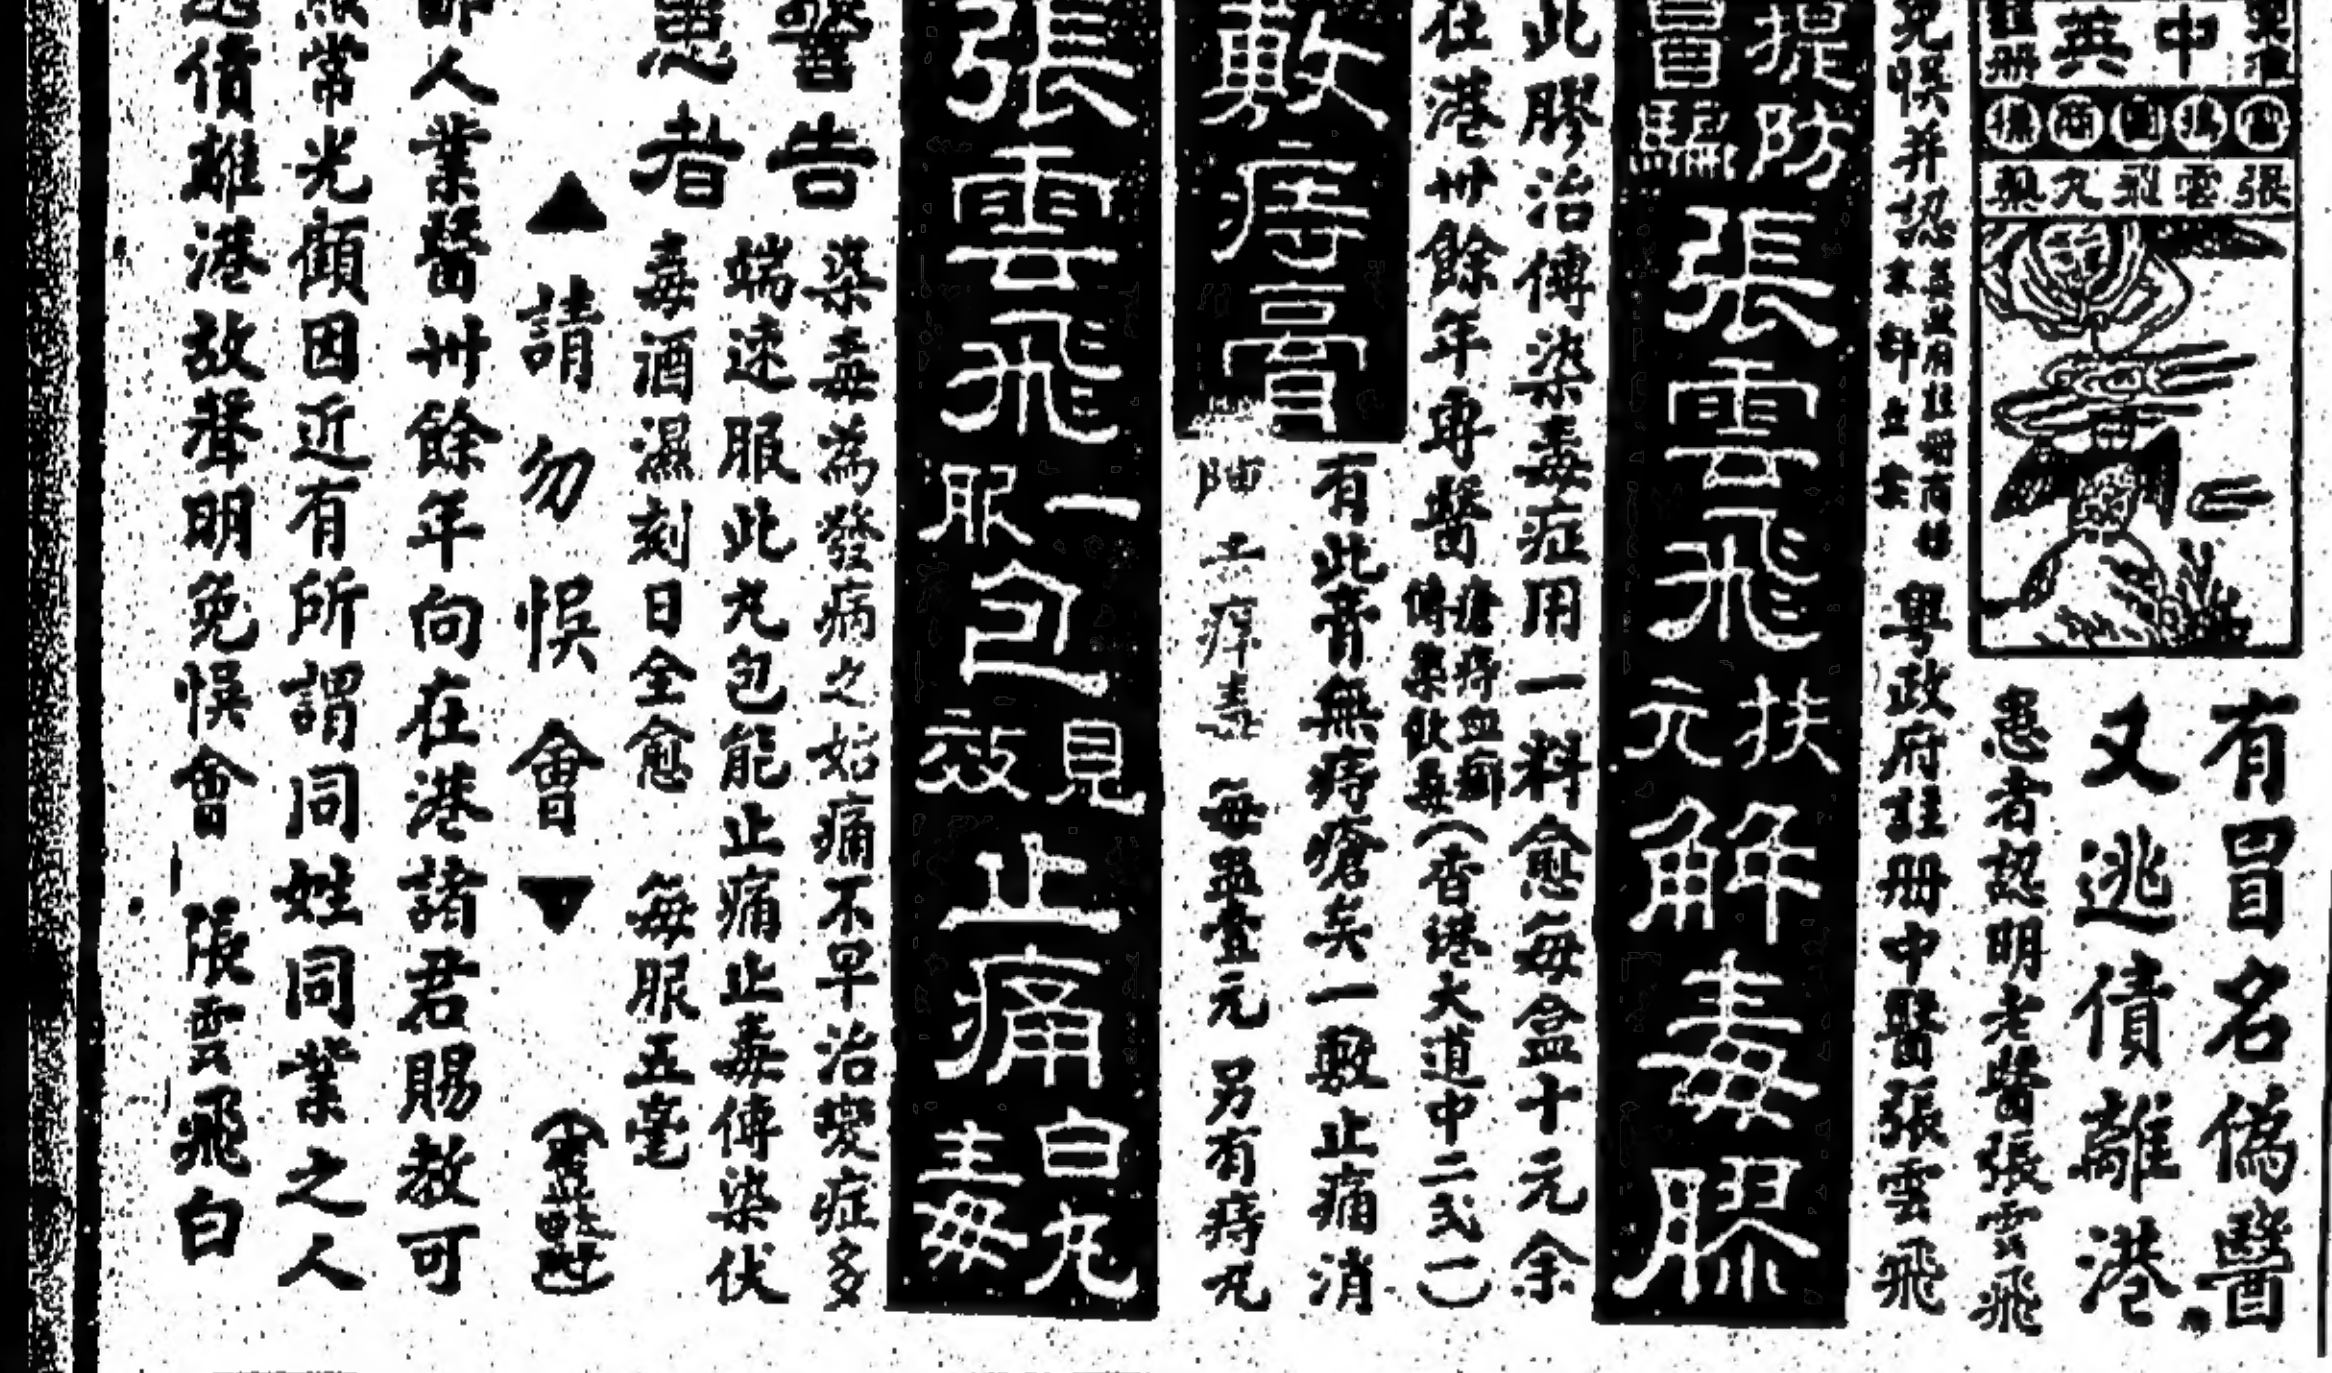 中英
註册
張雲飛丸藥
有冒名偽醫
又逃債離港
患者認明老醫張雲飛
免悞并認
粵政府註册中醫張雲飛
提防冒騙
張雲飛扶元解毒膠
此膠治傳染毒症用一料愈每盒十元余
在港卅餘年專醫瘡痔血癬傳染飲毒(香港大道中二弍一)
敷痔膏
有此膏無痔瘡矣一敷止痛消
毒 每盅壹元 另有痔丸
張雲飛一服包見效止痛白丸
主毒
警告患者
染毒為發病之始痛不早治變症多
端速服此丸包能止痛止毒傳染伏
毒酒濕刻日全愈 每服五毫
▲請勿悞會▼
人業醫卅餘年向在港諸君賜教可
常光顧因近有所謂同姓同業之人
債離港故聲明免悞會 張雲飛白